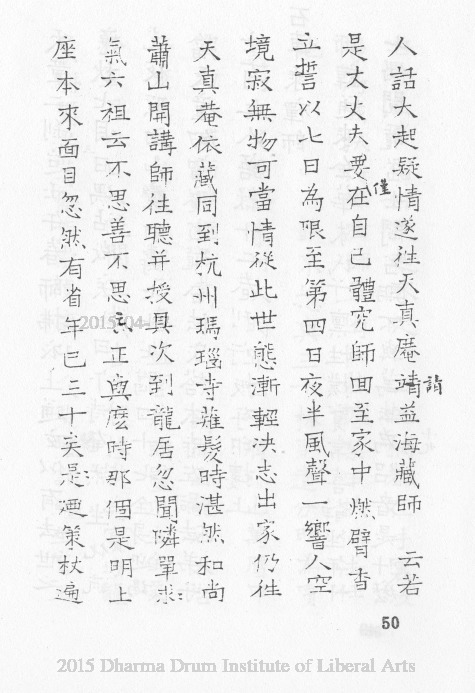 人話大起疑情遂往天真庵靖益海藏師 云若
請
是大丈夫要在自己體究師回至家中燃臂香
僅
立誓以七日為限至第四日夜半風聲一響人空
境寂無物可當情從此世態漸輕決志出家仍往
天真菴依藏同到杭州瑪瑙寺薙髮時湛然和尚
蕭山開講師往聽并授具次到龍居忽聞隣單求
氣六祖云不思善不思 正與麼時那個是明上
座本來面目忽然有省年已三十矣是廼策杖遍
2015-04-
50
2015 Dharma Drum Institute of Liberal Arts